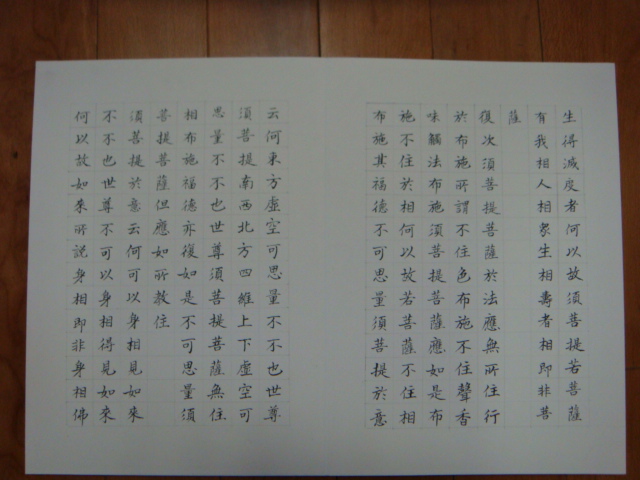 生得滅度者何以故須菩提若菩薩
有我相人相眾生相壽者相即非菩
薩
復次須菩提菩薩於法應無所住行
於布施所謂不住色布施不住聲香
味觸法布施須菩提菩薩應如是布
施不住於相何以故若菩薩不住相
布施其福德不可思量須菩提於意
云何東方虛空可思量不不也世尊
須菩提南西北方四維上下虛空可
思量不不也世尊須菩提菩薩無住
相布施福德亦復如是不可思量須
菩提菩薩但應如所教住
須菩提於意云何可以身相見如來
不不也世尊不可以身相得見如來
何以故如來所說身相即非身相佛